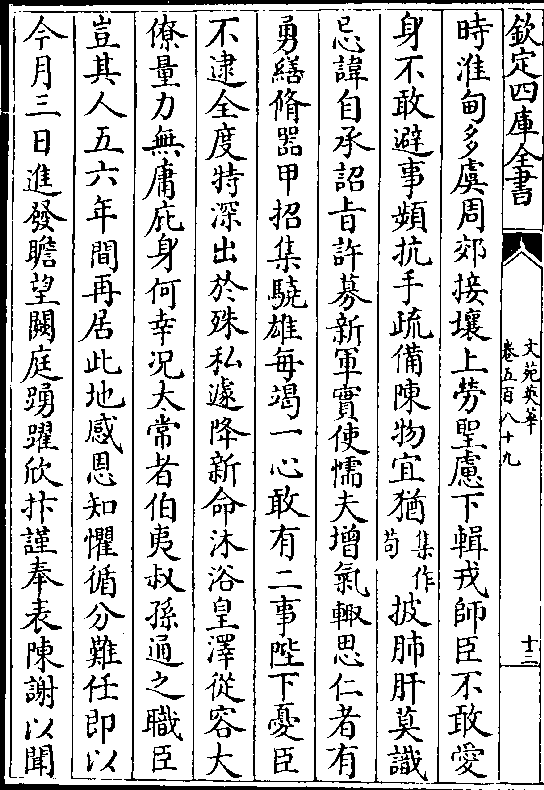 欽定四庫全書
文苑英華
卷五百八十九
十三
時淮甸多虞周郊接壤上勞聖慮下輯戎師臣不敢愛
身不敢避事頻抗手疏備陳物宜猶集作苟披肺肝莫識
忌諱自承詔㫖許募新軍實使懦夫增氣輙思仁者有
勇繕脩器甲招集驍雄每竭一心敢有二事陛下憂臣
不逮全度特深出於殊私遽降新命沐浴皇澤從容大
僚量力無庸庇身何幸况太常者伯夷叔孫通之職臣
豈其人五六年間再居此地感恩知懼循分難任即以
今月三日進發瞻望闕庭踴躍欣抃謹奉表陳謝以聞